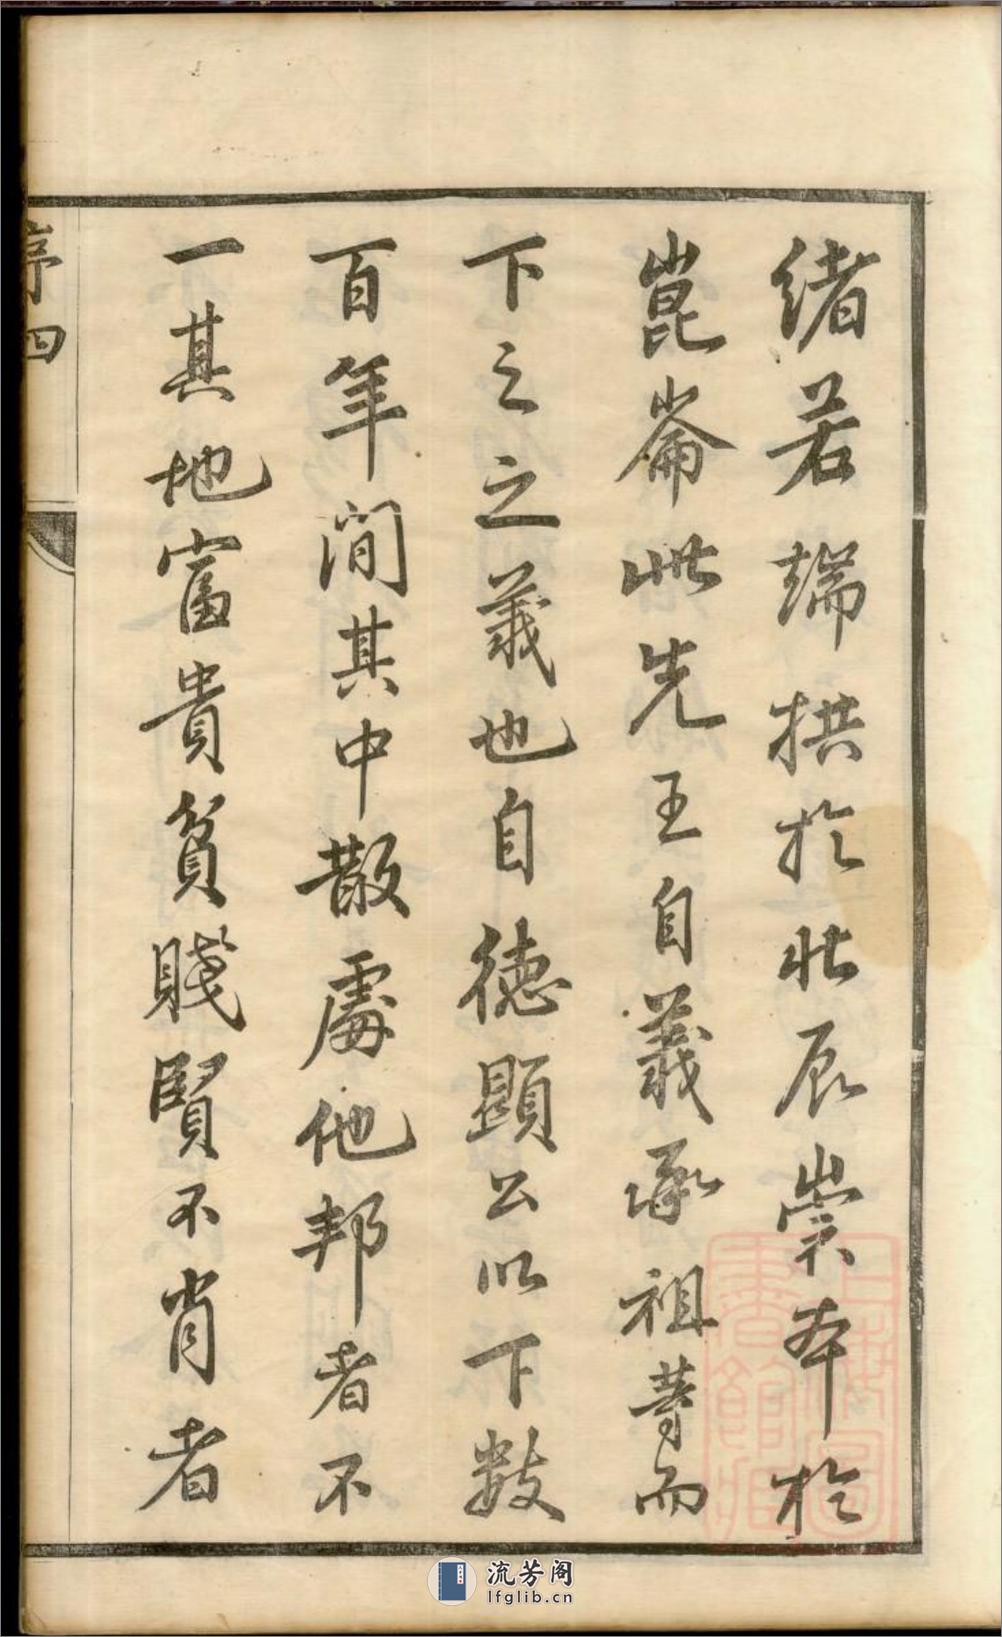 緒若端拱於北辰崇本於
崑崙此先王自義承祖等而
下之之義也自德顯公以下數
百年間其中散處他邦者不
一其地富貴貧賤賢不肖者
序四
上海圖書館藏
流芳阁
lfglib.cn